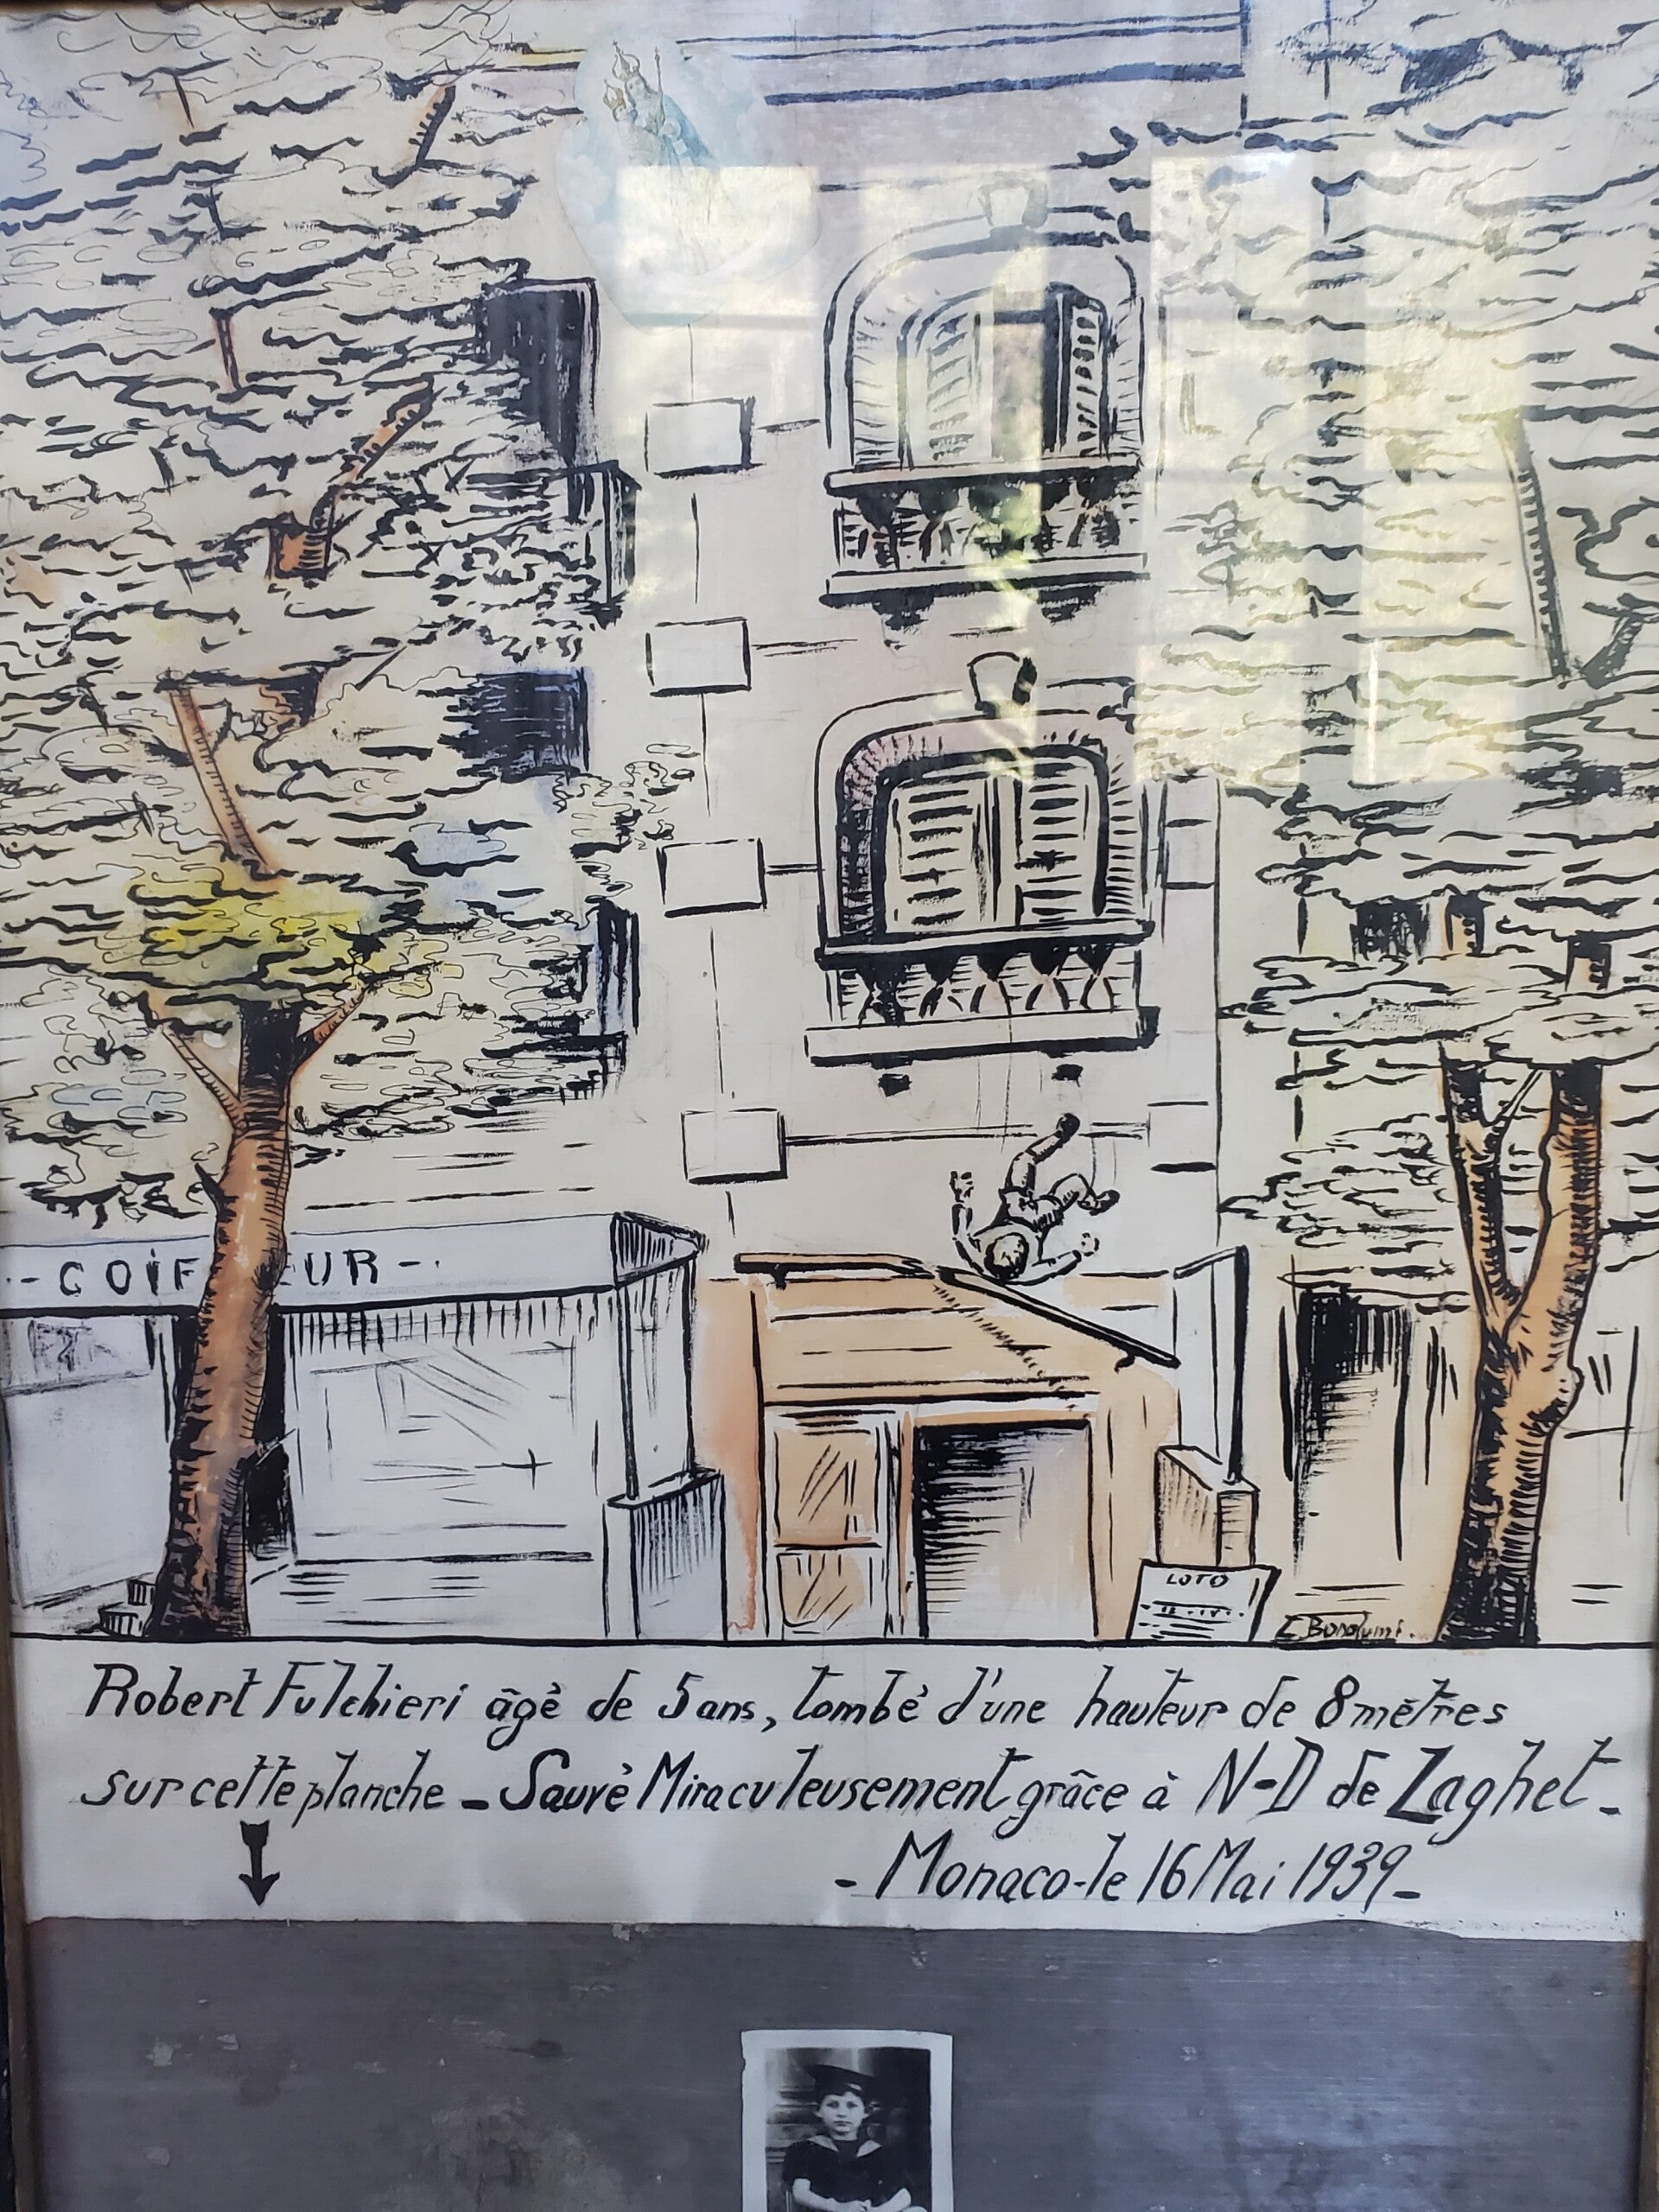 - COIF EUR -
LOTO
Robert Fulchieri âgé de 5 ans, tombé d'une hauteur de 8 mètres
sur cette planche - Sauvé Miraculeusement grâce à N-D de Laghet -
- Monaco - le 16 Mai 1939 -